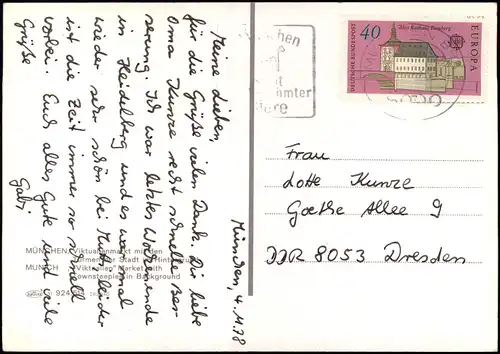 München, 4.11.78
Meine Lieben,
für die Grüße vielen Dank. Dir liebe
Oma Kunze recht schnelle Bes-
serung. Ich war letztes Wochenende
in Heidelberg und es war mal
wieder sehr schön bei Mutti, leider
ist die Zeit immer so schnell
vorbei. Euch alles Gute und viele
Grüße
Gabi
MÜNCHEN, Viktualienmarkt mit den
Türmen der Stadt im Hintergrund
MUNICH "Viktualien" Market with
Townsteeples in Background
924
40
Altes Rathaus Bamberg
DEUTSCHE BUNDESPOST
EUROPA
Frau
Lotte Kunze
Goethe Allee 9
DDR 8053 Dresden